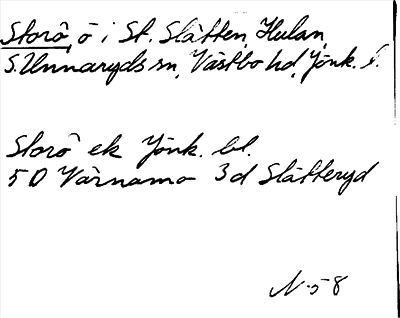 Storö, ö i St. Slätten, Hulan,
S. Unnaryds sn, Västbo hd, Jönk. l.
Storö ek Jönk. bl.
5D Värnamo 3d Slätteryd
N-58